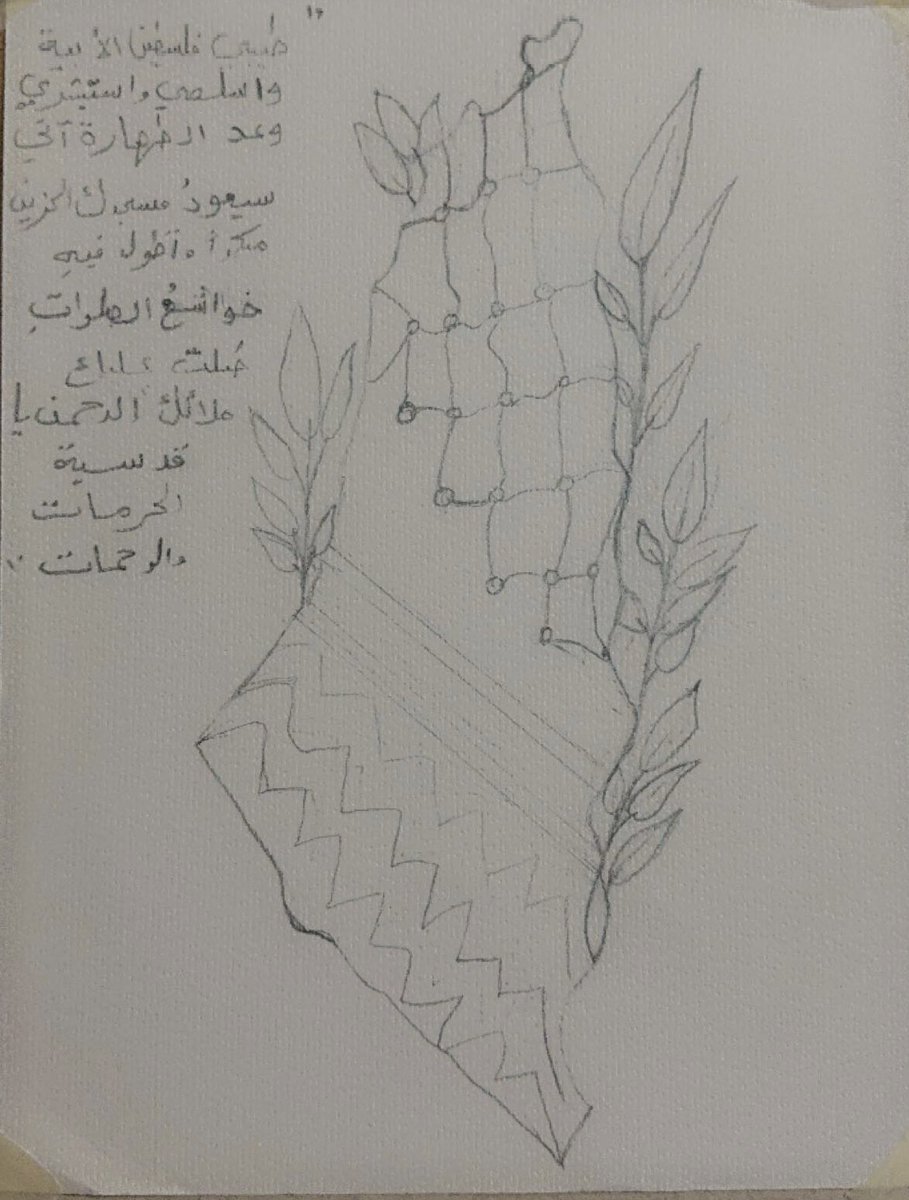 " طيبي فلسطين الأبية
واسلمي واستبشري
وعد الطهارة آتي
سيعودُ مسجدك الحزين
مكبراً وأطول فيهِ
خواشعُ الصلواتِ
صلت
ملائك الرحمن يا
قدسية
الحرمات
والرحمات "